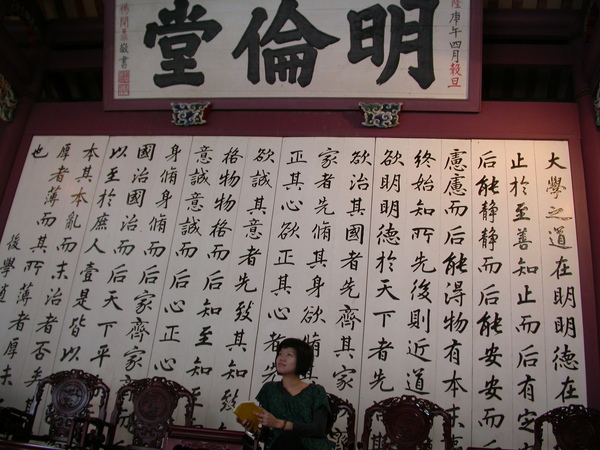 明倫堂
庚午四月穀旦
大學之道在明明德在
止於至善知止而后有定
后能靜靜而后能安安而后
慮慮而后能得物有本末
終始知所先後則近道
欲明明德於天下者先
欲治其國者先齊其
家者先脩其身欲脩
正其心欲正其心
欲誠其意者先致其知
格物物格而后知至知
意誠意誠而后心正心
身脩身脩而后家齊家
國治國治而后天下平
以至於庶人壹是皆以
本其本亂而末治者否矣
厚者薄而其所薄者厚未
也
後學趙